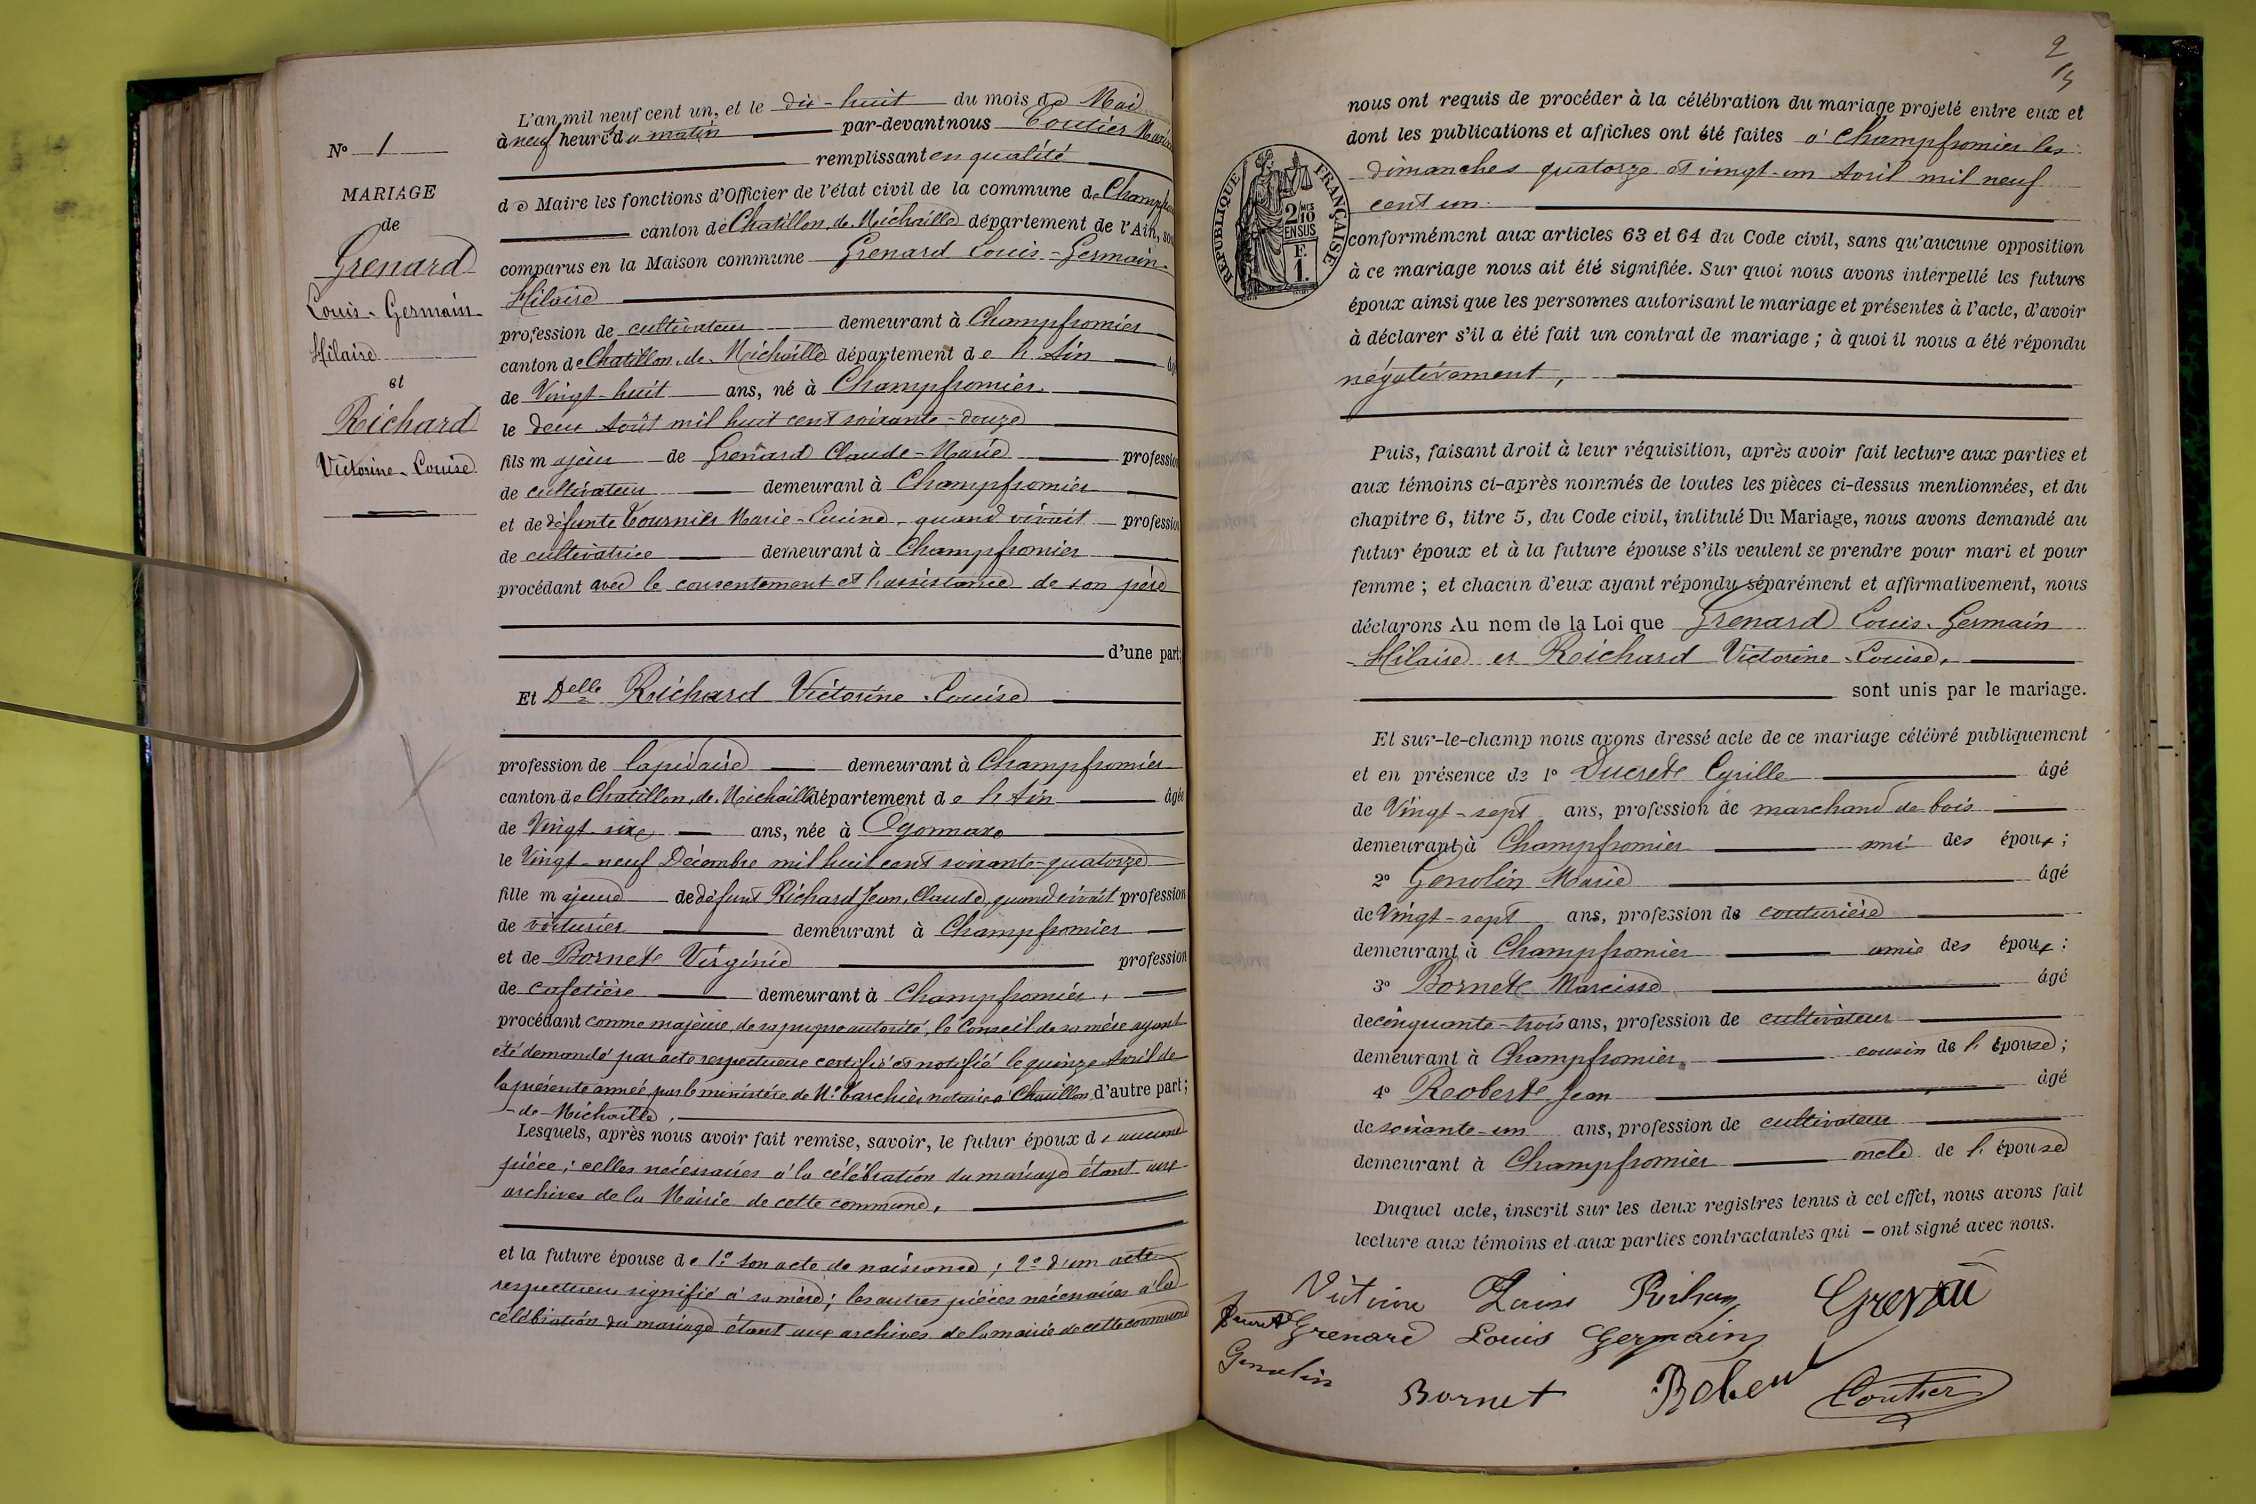 N° 1
MARIAGE
de
Grenard
Louis-Germain
Hilaire
et
Richard
Victorine-Louise
L'an mil neuf cent un, et le dix-huit du mois de Mai
à neuf heures du matin par-devant nous Coutier
remplissant en qualité
de Maire les fonctions d'Officier de l'état civil de la commune de
canton de Chatillon de Michaille département de l'Ain, sont
comparus en la Maison commune Grenard Louis-Germain
Hilaire
profession de cultivateur demeurant à Champfromier
canton de Chatillon de Michaille département de l'Ain
de Vingt-huit ans, né à Champfromier
le deux Août mil huit cent soixante-douze
fils majeur de Grenard Claude-Marie profession
de cultivateur demeurant à Champfromier
et de défunte Tournier Marie-Lucine, quand vivait profession
de cultivatrice demeurant à Champfromier
procédant avec le consentement et l'assistance de son père
d'une part;
Et Delle Richard Victorine-Louise
profession de lapidaire demeurant à Champfromier
canton de Chatillon de Michaille département de l'Ain âgée
de Vingt-six ans, née à Oyonnax
le Vingt-neuf Décembre mil huit cent soixante-quatorze
fille majeure de défunt Richard Jean-Claude, quand vivait profession
de voiturier demeurant à Champfromier
et de Bornet Virginie profession
de cafetière demeurant à Champfromier,
procédant comme majeure, de sa propre autorité, le Conseil de sa mère ayant
été demandé par acte respectueux certifié et notifié le quinze Avril de
la présente année par le ministère de Me notaire à Chatillon d'autre part;
-de-Michaille,
Lesquels, après nous avoir fait remise, savoir, le futur époux de aucune
pièce; celles nécessaires à la célébration du mariage étant aux
archives de la Mairie de cette commune,
et la future épouse de 1° son acte de naissance; 2° d'un acte
respectueux signifié à sa mère; les autres pièces nécessaires à la
célébration du mariage étant aux archives de la mairie de cette commune
2
nous ont requis de procéder à la célébration du mariage projeté entre eux et
dont les publications et affiches ont été faites à Champfromier les
dimanches quatorze et vingt-un Avril mil neuf
cent un
RÉPUBLIQUE FRANÇAISE
2/10 MES
EN SUS
F.
1.
conformément aux articles 63 et 64 du Code civil, sans qu'aucune opposition
à ce mariage nous ait été signifiée. Sur quoi nous avons interpellé les futurs
époux ainsi que les personnes autorisant le mariage et présentes à l'acte, d'avoir
à déclarer s'il a été fait un contrat de mariage; à quoi il nous a été répondu
négativement,
Puis, faisant droit à leur réquisition, après avoir fait lecture aux parties et
aux témoins ci-après nommés de toutes les pièces ci-dessus mentionnées, et du
chapitre 6, titre 5, du Code civil, intitulé Du Mariage, nous avons demandé au
futur époux et à la future épouse s'ils veulent se prendre pour mari et pour
femme; et chacun d'eux ayant répondu séparément et affirmativement, nous
déclarons Au nom de la Loi que Grenard Louis-Germain
Hilaire et Richard Victorine-Louise,
sont unis par le mariage.
Et sur-le-champ nous avons dressé acte de ce mariage célébré publiquement
et en présence de 1° Ducret Cyrille âgé
de Vingt-sept ans, profession de marchand de bois
demeurant à Champfromier ami des époux;
2° Genolin Marie âgé
de Vingt-sept ans, profession de couturière
demeurant à Champfromier amie des époux;
3° Bornet Narcisse âgé
de cinquante-trois ans, profession de cultivateur
demeurant à Champfromier cousin de l'épouse;
4° Robert Jean âgé
de soixante-un ans, profession de cultivateur
demeurant à Champfromier oncle de l'épouse
Duquel acte, inscrit sur les deux registres tenus à cet effet, nous avons fait
lecture aux témoins et aux parties contractantes qui - ont signé avec nous.
Victorine Louise Richard Grenard
Ducret Grenard Louis Germain
Genolin
Bornet Robert Coutier